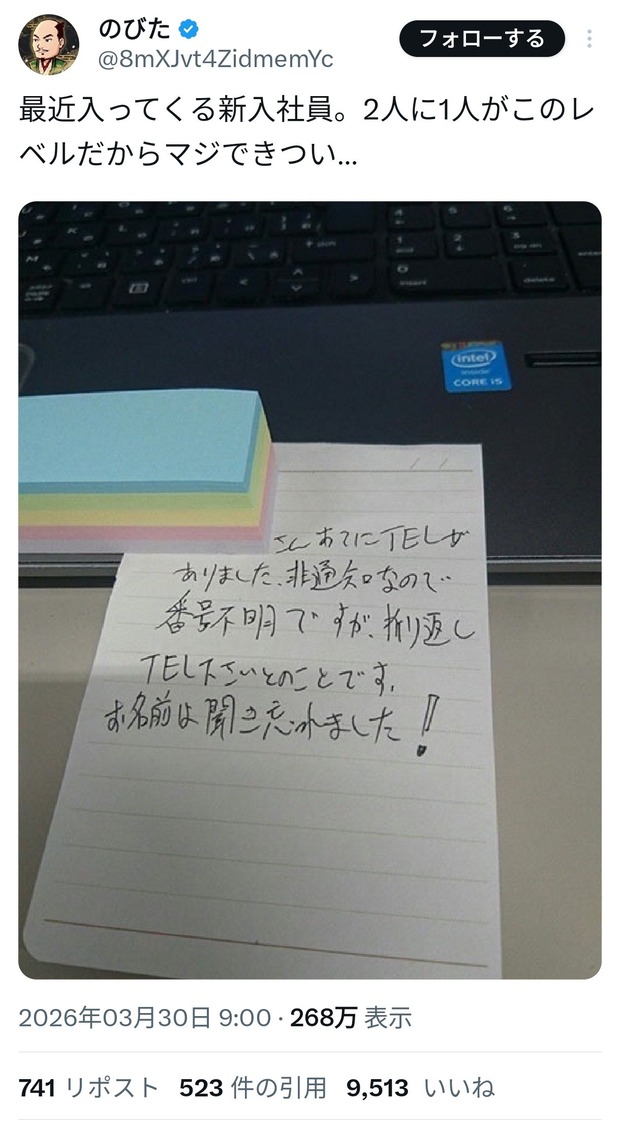 のびた
@8mXJvt4ZidmemYc
フォローする
最近入ってくる新入社員。2人に1人がこのレ
ベルだからマジできつい...
intel
inside
CORE i5
さんあてにTELが
ありました、非通知なので
番号不明ですが、折り返し
TEL下さいとのことです。
お名前は聞き忘れました!
2026年03月30日 9:00 · 268万 表示
741 リポスト 523 件の引用 9,513 いいね